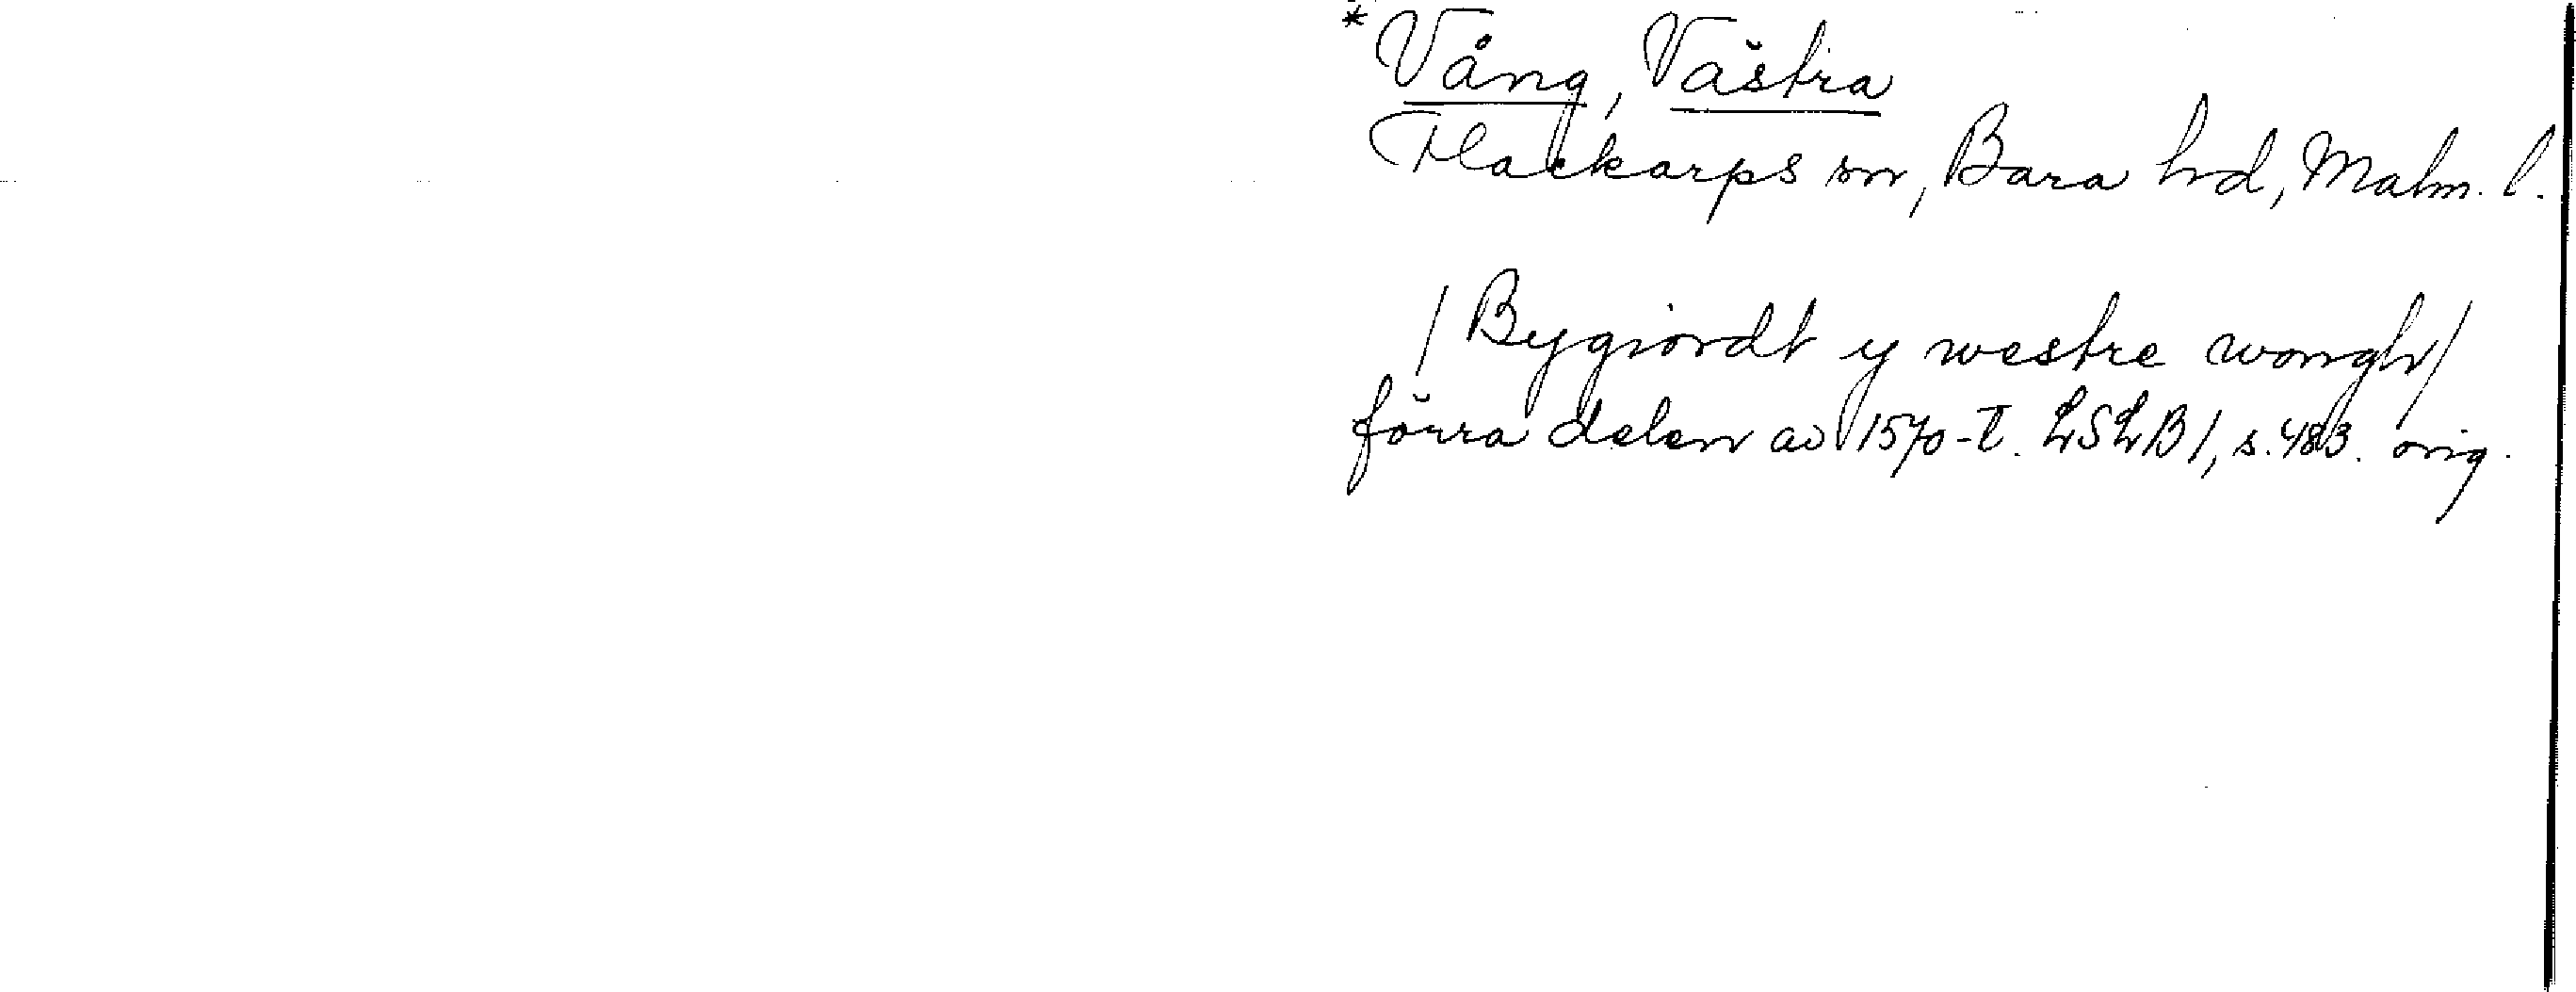 *Vång, Västra
Flackarps sn, Bara hd, Malm. l.
/Bygiordt y westre wongh/
förra delen av 1570-t. LSLB 1, s. 483. orig.